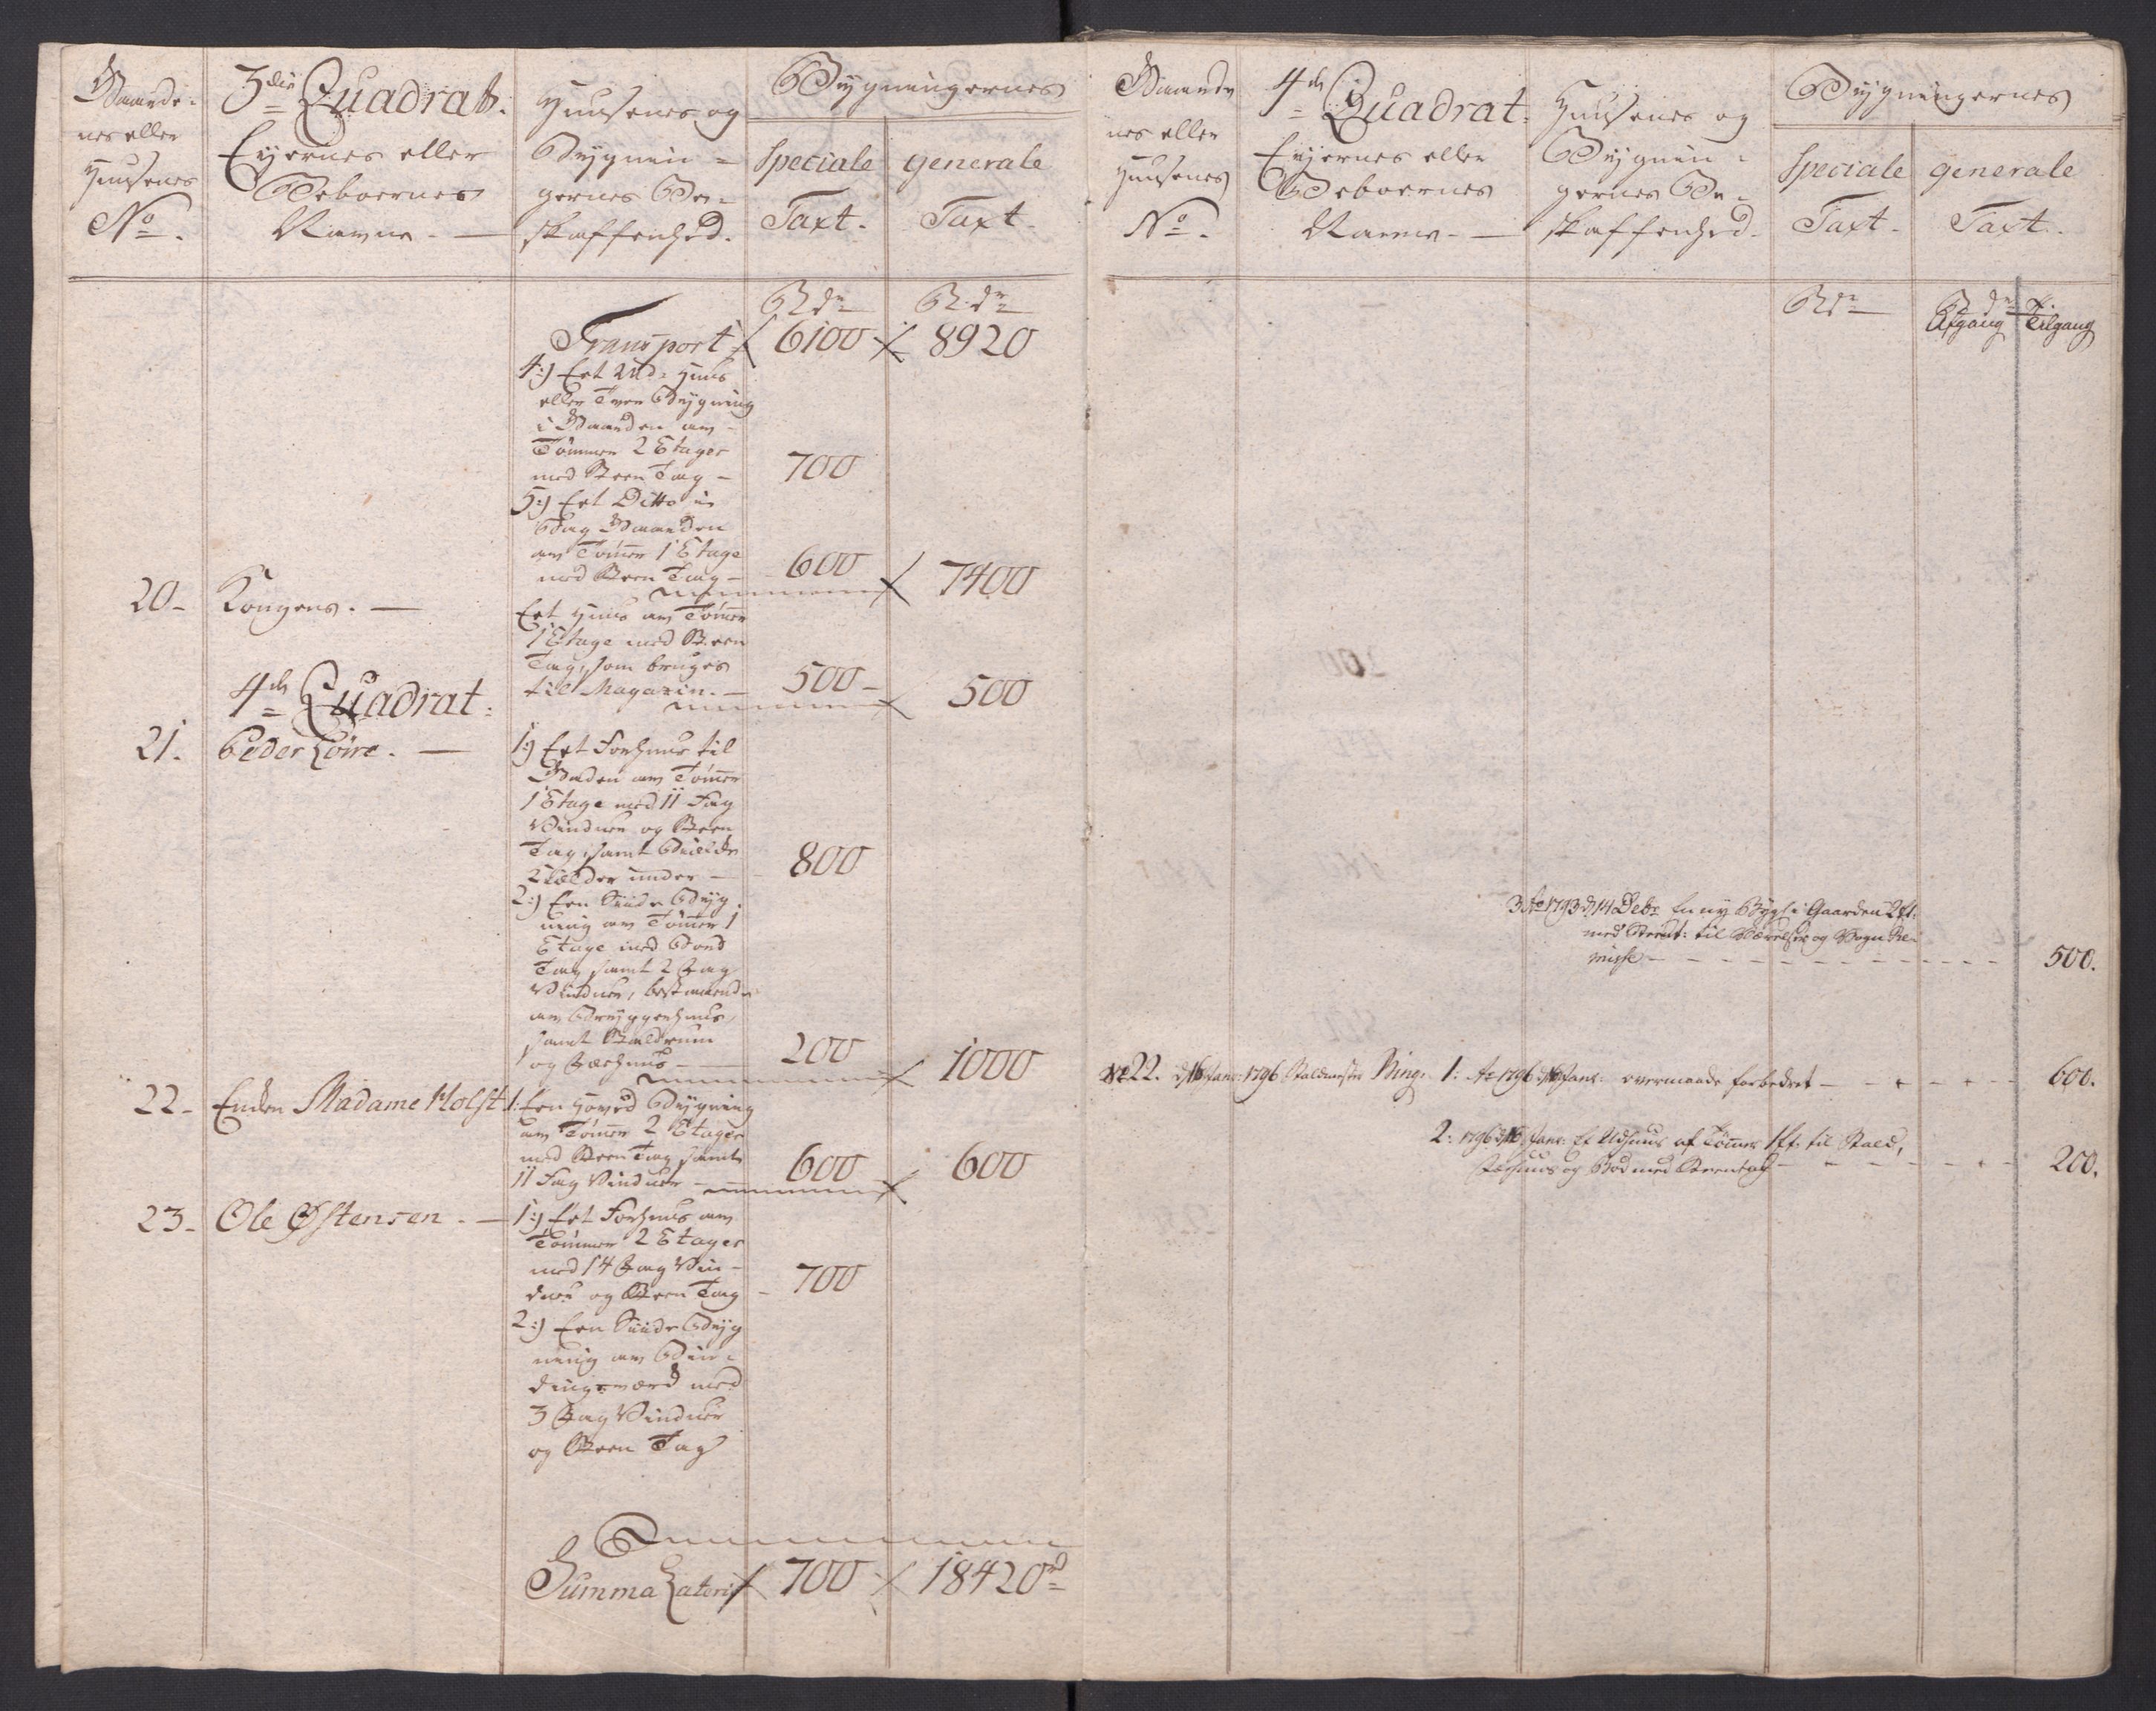 Gaarde-
nes eller
Huusenes
No.
3die Quadrat.
Eyernes eller
Beboernes
Navne.
Huusenes og
Bygnin-
gernes Be-
skaffenhed.
Bygningernes
Speciale
Taxt.
generale
Taxt.
Rdr
Rdr
Transport 6100 8920
4:) Eet Ud-Huus
eller Tver Bygning
i Gaarden am
Tømmer 2 Etager
med Steen Tag - 700
5:) Eet Ditto in
Bag Gaarden
am Tømer 1 Etage
med Steen Tag - 600 7400
20- Kongens. -
Eet Huus am Tømer
1 Etage med Steen
Tag, som bruges
til Magazin. - 500 - 500
4de Quadrat.
21. Peder Loire. -
1:) Eet Forhuus til
Gaden am Tømer
1 Etage med 11 Fag
Vinduer og Steen
Tag, samt
Kælder under - 800
2:) Een Siide Byg-
ning am Tømer 1
Etage med Bord
Tag samt 2 Fag
Vinduer, bestaaende
am Bryggerhuus,
samt Staldrum
og Fæehuus - 200 1000
22- Enken Madame Holst
1: Een Hoved Bygning
am Tømer 2 Etager
med Steen Tag samt
11 Fag Vinduer - 600 600
23- Ole Østensen. -
1:) Eet Forhuus am
Tømmer 2 Etager
med 14 Fag Vin-
duer og Steen Tag - 700
2:) Een Siide Byg
ning am Bin-
dingsværd med
3 Fag Vinduer
og Steen Tag
Summa Lateris 700 18420rd
Gaarde
nes eller
Huusenes
No.
4de Quadrat.
Eyernes eller
Beboernes
Navne. -
Huusenes og
Bygnin-
gernes Be-
skaffenhed.
Bygningernes
Speciale
Taxt.
generale
Taxt.
Rdr
Rdr
Afgang Tilgang
3 Ao 1793 d 14 Debr En ny Bygn: i Gaarden 2 Et:
med Steent: til Værelser og Vogn Re-
misse - 500.
No 22. d 16 Janr: 1796 Staldmester Bing. 1: Ao 1796 d 16 Janr: overmaade forbedret - 600.
2: 1796 d 16 Janr: Et Udhuus af Tømmer 1 Et. til Stald,
Fæehuus og Bod med Steentag - 200.